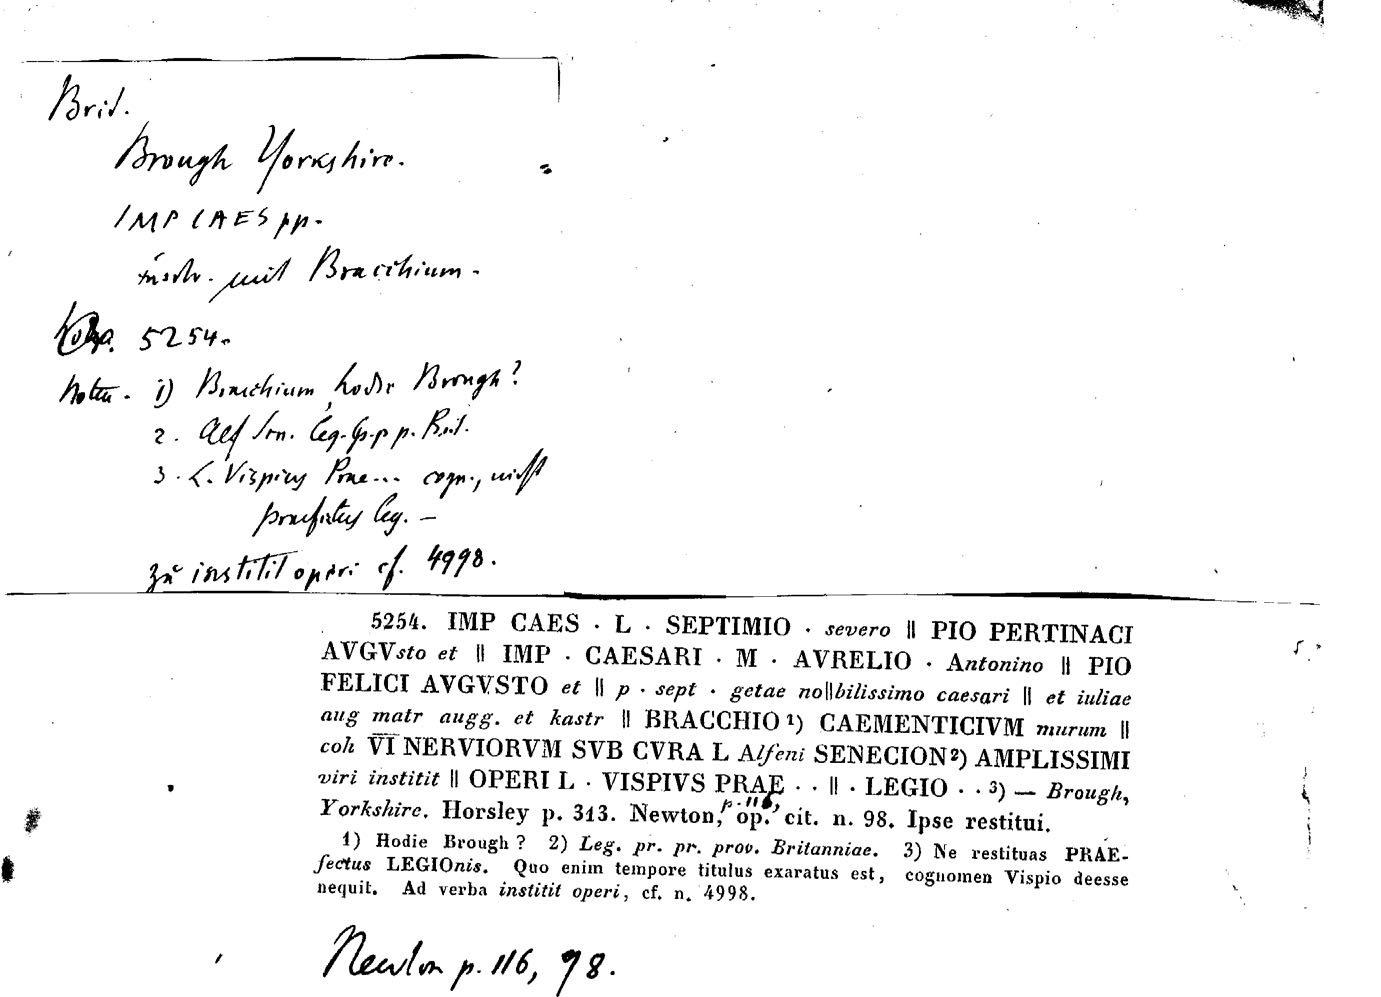 Brit.
Brough Yorkshire.
IMP CAES pp.
inschr. mit Bracchium.
5254.
Noten. 1) Bracchium, hodie Brough?
2. Alf Sen. Leg. p. p. Brit.
3. L. Vispius Prae... cogn., nicht
praefectus leg. —
zu institit operi cf. 4998.
5254. IMP CAES · L · SEPTIMIO · severo || PIO PERTINACI
AVGVsto et || IMP · CAESARI · M · AVRELIO · Antonino || PIO
FELICI AVGVSTO et || p · sept · getae no||bilissimo caesari || et iuliae
aug matr augg. et kastr || BRACCHIO ¹) CAEMENTICIVM murum ||
coh V̅I̅ NERVIORVM SVB CVRA L Alfeni SENECION²) AMPLISSIMI
viri institit || OPERI L · VISPIVS PRAE · · || · LEGIO · · ³) — Brough,
Yorkshire. Horsley p. 313. Newton, p. 116, op. cit. n. 98. Ipse restitui.
1) Hodie Brough? 2) Leg. pr. pr. prov. Britanniae. 3) Ne restituas PRAE-
fectus LEGIOnis. Quo enim tempore titulus exaratus est, cognomen Vispio deesse
nequit. Ad verba institit operi, cf. n. 4998.
Newton p. 116, 98.